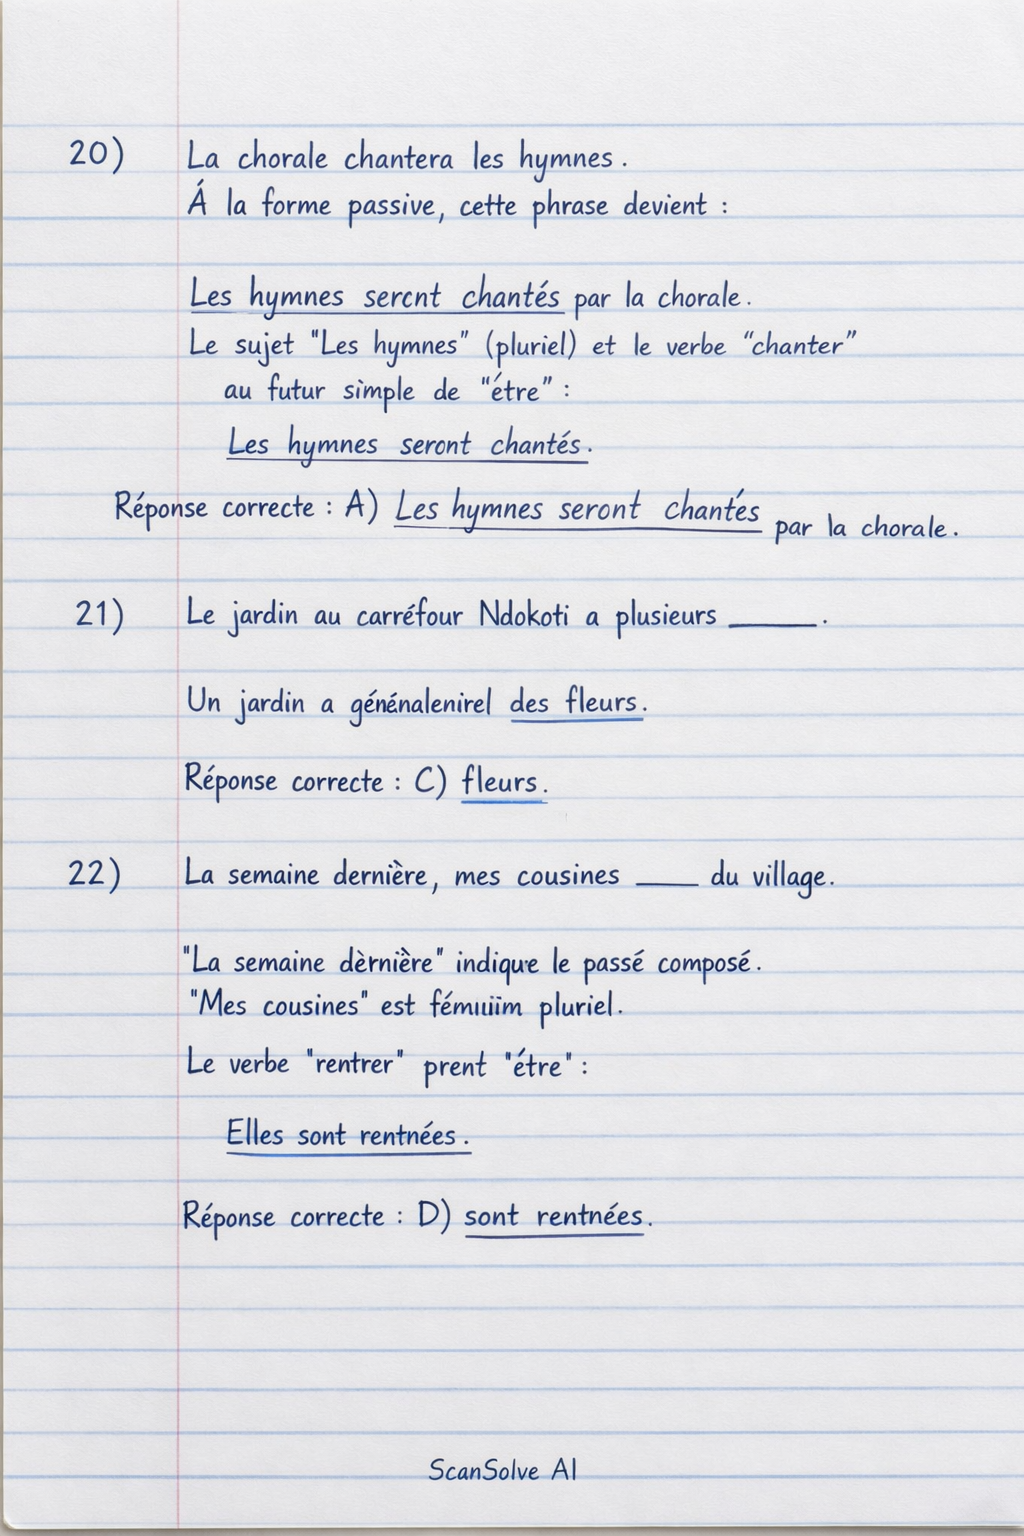 20) La chorale chantera les hymnes.
Á la forme passive, cette phrase devient :
Les hymnes sercnt chantés par la chorale.
Le sujet "Les hymnes" (pluriel) et le verbe "chanter"
au futur simple de "étre" :
Les hymnes seront chantés.
Réponse correcte : A) Les hymnes seront chantés par la chorale.
21) Le jardin au carréfour Ndokoti a plusieurs ______.
Un jardin a génénalenirel des fleurs.
Réponse correcte : C) fleurs.
22) La semaine dernière, mes cousines ____ du village.
"La semaine dèrnière" indique le passé composé.
"Mes cousines" est pluriel.
Le verbe "rentrer" prent "étre" :
Elles sont rentnées.
Réponse correcte : D) sont rentnées.
ScanSolve AI